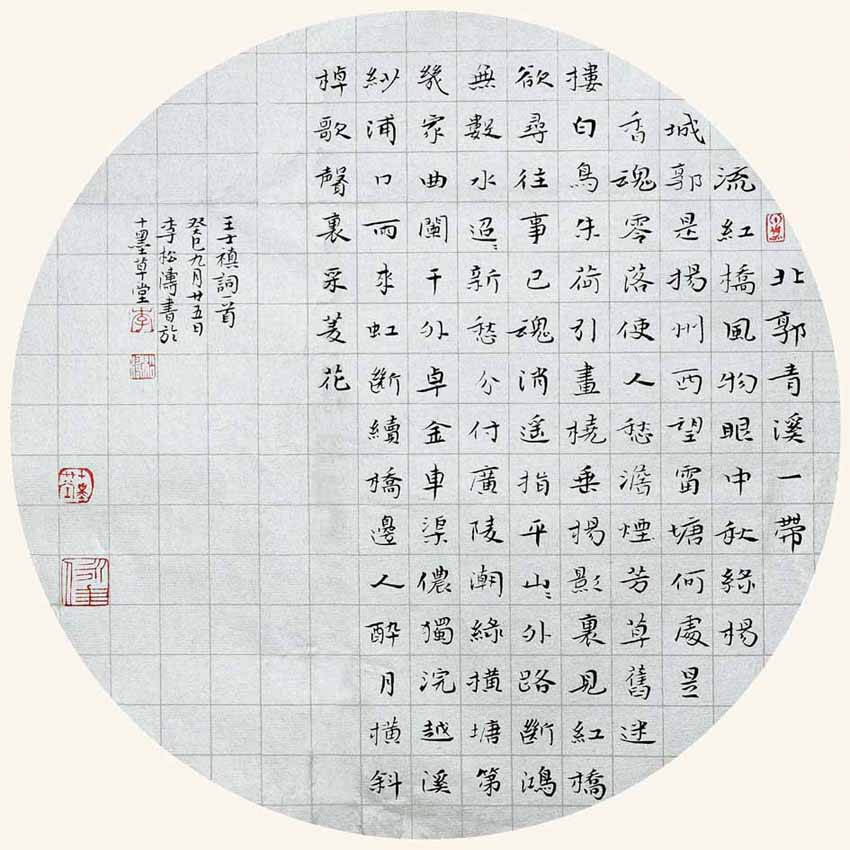 北郭青溪一帶
流紅橋風物眼中秋綠楊
城郭是揚州西望雷塘何處是
香魂零落使人愁澹煙芳草舊迷
樓白鳥朱荷引畫橈垂楊影裏見紅橋
欲尋往事已魂消遙指平山〻外路斷鴻
無數水迢〻新愁分付廣陵潮綠橫塘第
幾家曲闌干外卓金車渠儂獨浣越溪
紗浦口雨來虹斷續橋邊人醉月橫斜
棹歌聲裏采菱花
王士禎詞一首
癸巳九月廿五日
李松濤書於
十墨草堂
李